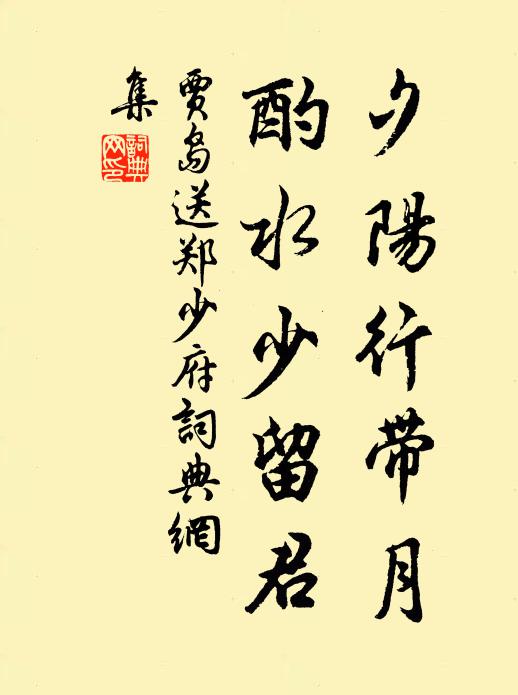 夕陽行带月
酌水少留君
賈島送郑少府詞典網
集
詞典
网印